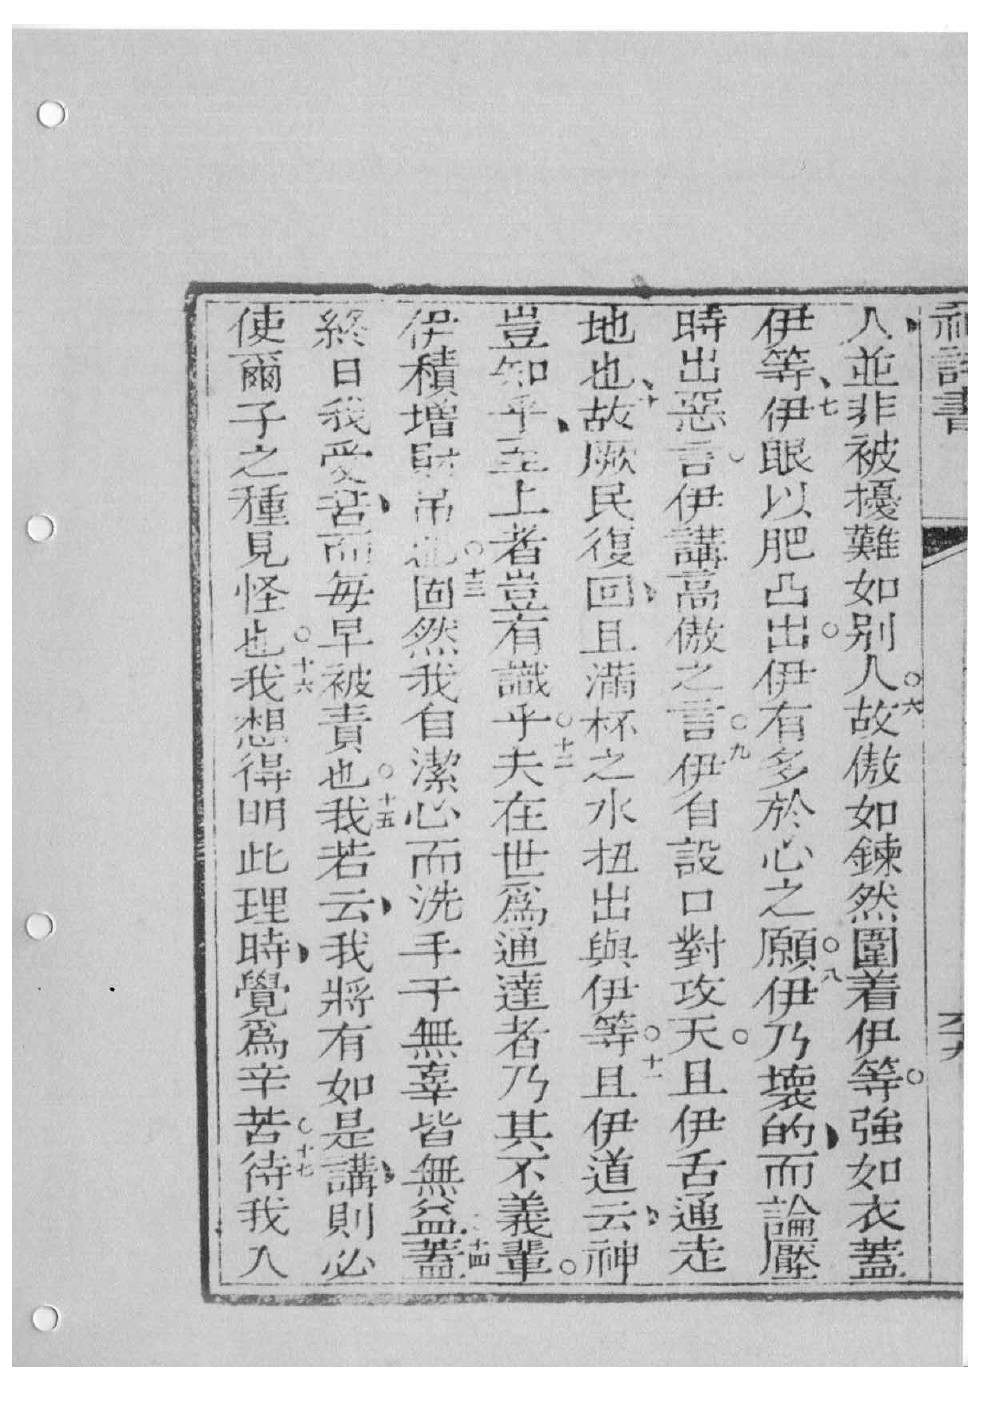 神詩書
人並非被擾難如别人○六故傲如鍊然圍着伊等○強如衣蓋
伊等七伊眼以肥凸出○伊有多於心之願○八伊乃壞的而論壓
時出惡言伊講高傲之言○九伊自設口對攻天○且伊舌通走
地也十故厥民復回且滿杯之水扭出與伊等○十一且伊道云神
豈知乎至上者豈有識乎○十二夫在世爲通達者乃其不義輩○
伊積增財帛也○十三固然我自潔心而洗手于無辜皆無益十四蓋
終日我受苦而每早被責也○十五我若云我將有如是講則必
使爾子之種見怪也○十六我想得明此理時覺爲辛苦○十七待我入